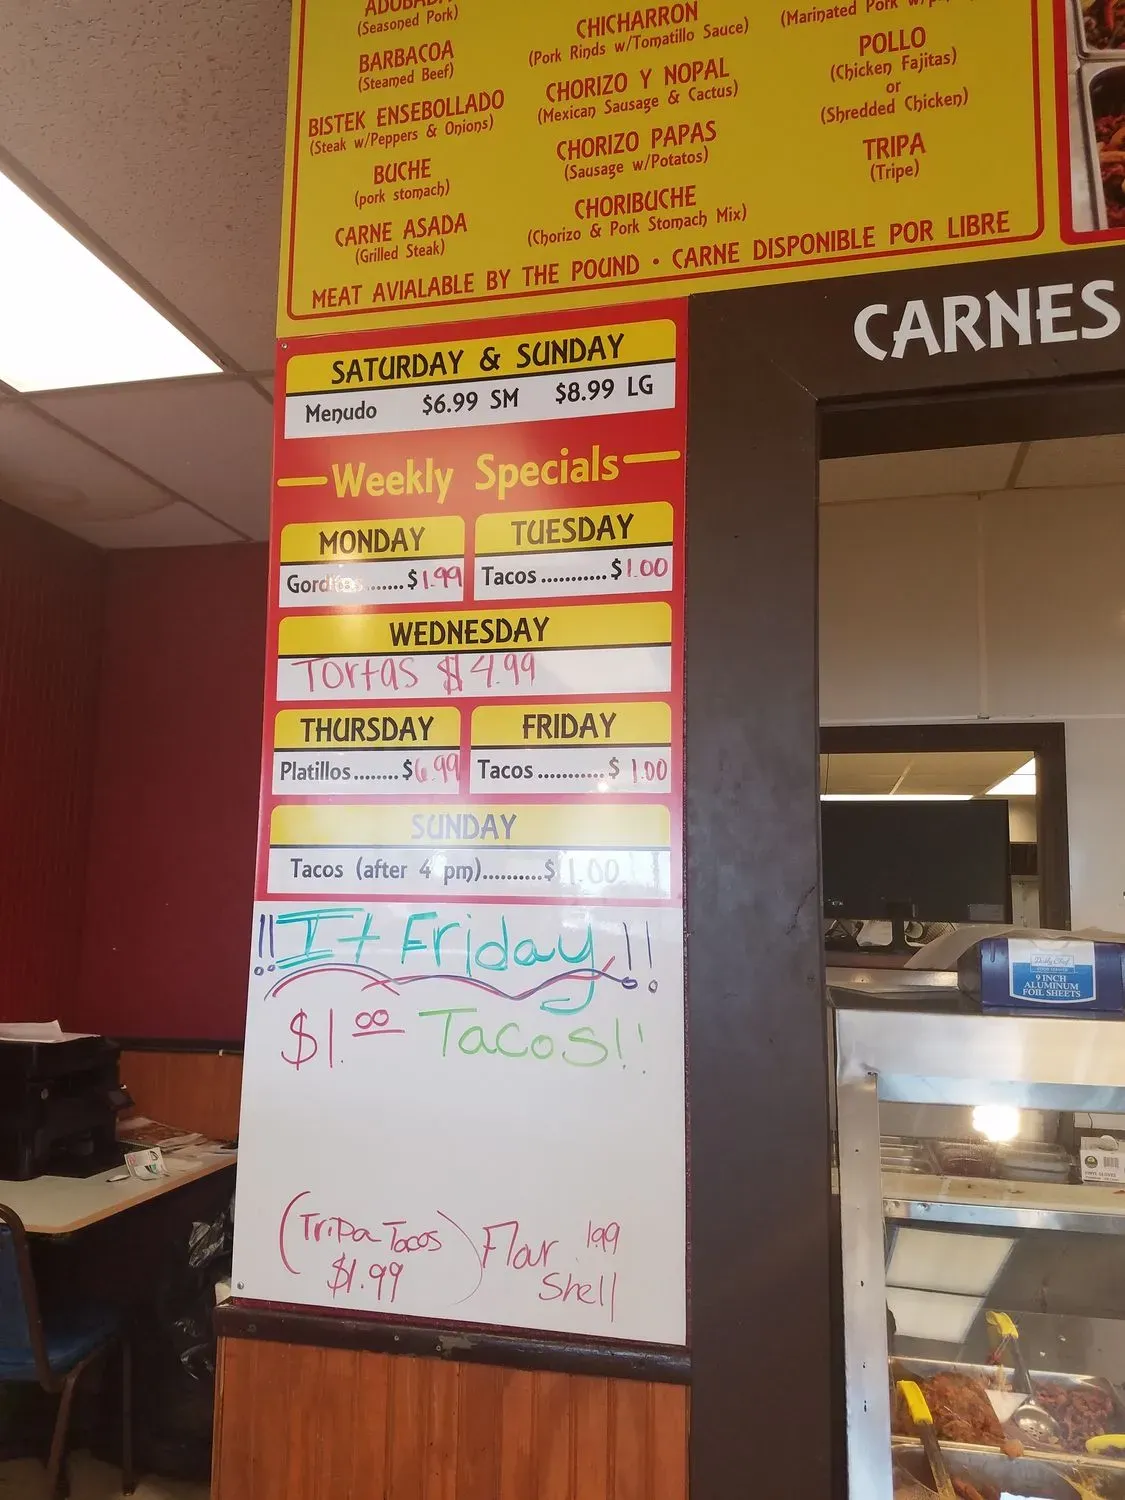 ADOBADA
(Seasoned Pork)
BARBACOA
(Steamed Beef)
BISTEK ENSEBOLLADO
(Steak w/Peppers & Onions)
BUCHE
(pork stomach)
CARNE ASADA
(Grilled Steak)
CHICHARRON
(Pork Rinds w/Tomatillo Sauce)
CHORIZO Y NOPAL
(Mexican Sausage & Cactus)
CHORIZO PAPAS
(Sausage w/Potatos)
CHORIBUCHE
(Chorizo & Pork Stomach Mix)
(Marinated Pork
POLLO
(Chicken Fajitas)
or
(Shredded Chicken)
TRIPA
(Tripe)
MEAT AVIALABLE BY THE POUND • CARNE DISPONIBLE POR LIBRE
CARNES
SATURDAY & SUNDAY
Menudo $6.99 SM $8.99 LG
Weekly Specials
MONDAY
Gorditas.......$1.99
TUESDAY
Tacos...........$1.00
WEDNESDAY
Tortas $4.99
THURSDAY
Platillos........$6.99
FRIDAY
Tacos...........$ 1.00
SUNDAY
Tacos (after 4 pm)..........$ 1.00
!!It Friday!!
$1.00 Tacos!!
(Tripa Tacos)
$1.99
Flour 1.99
Shell
Daily Chef
9 INCH
ALUMINUM
FOIL SHEETS